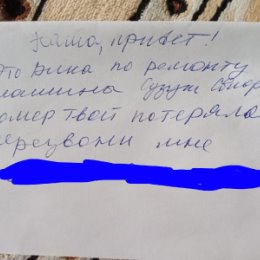 Наша, привет!
Это Вика по ремонту
машина Сузуки
номер твой потеряла
перезвони мне